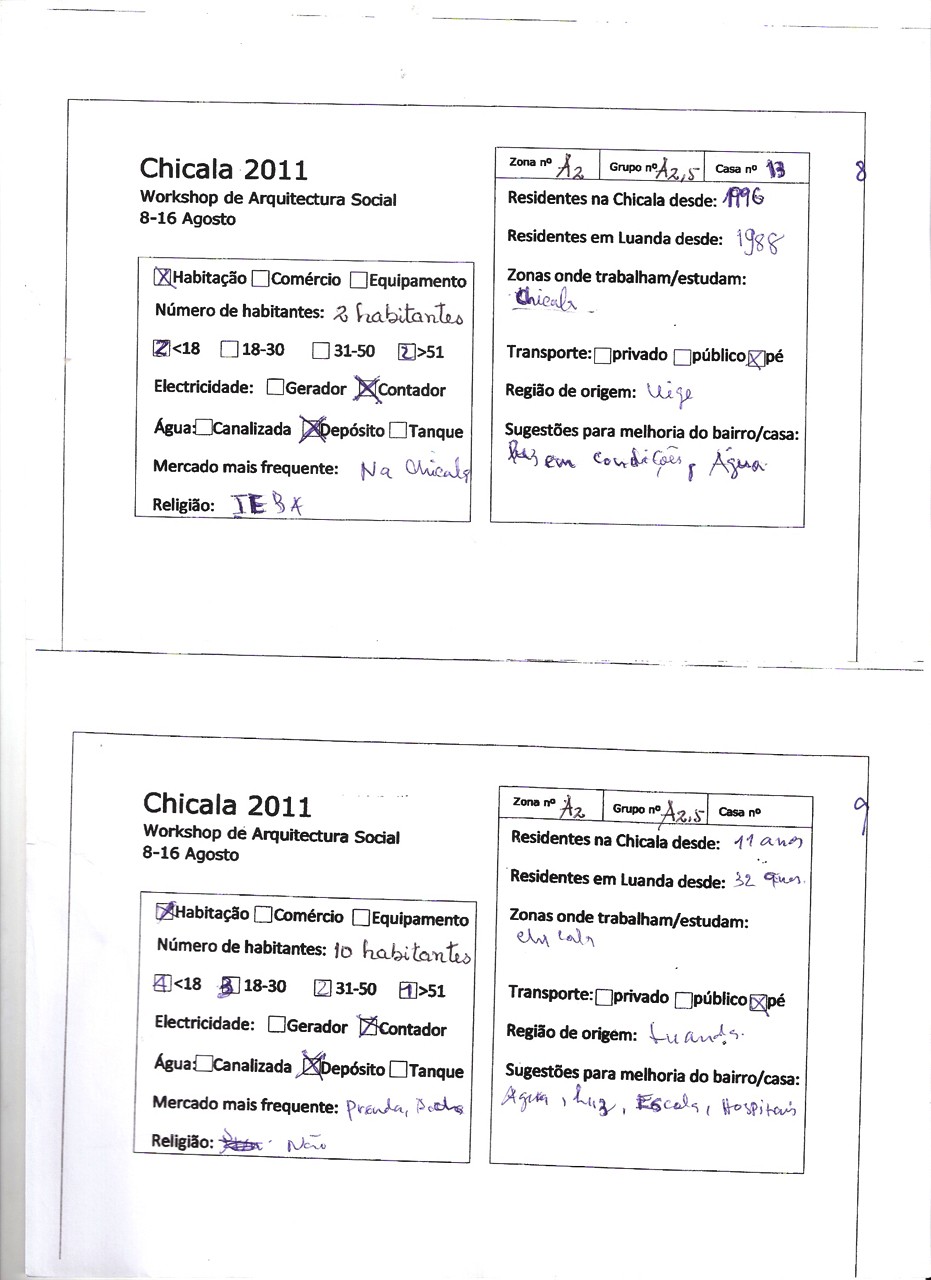 Chicala 2011
Workshop de Arquitectura Social
8-16 Agosto
Habitação Comércio Equipamento
Número de habitantes: 2 habitantes
2 <18 18-30 31-50 2 >51
Electricidade: Gerador Contador
Água: Canalizada Depósito Tanque
Mercado mais frequente: Na Chicala
Religião: IEBA
Zona nº A2 Grupo nº A2,5 Casa nº 13
8
Residentes na Chicala desde: 1996
Residentes em Luanda desde: 1988
Zonas onde trabalham/estudam:
Chicala
Transporte: privado público pé
Região de origem: Uige
Sugestões para melhoria do bairro/casa:
em condições, Água
Chicala 2011
Workshop de Arquitectura Social
8-16 Agosto
Habitação Comércio Equipamento
Número de habitantes: 10 habitantes
4 <18 3 18-30 2 31-50 1 >51
Electricidade: Gerador Contador
Água: Canalizada Depósito Tanque
Mercado mais frequente: Prenda,
Religião: Não
Zona nº A2 Grupo nº A2,5 Casa nº
9
Residentes na Chicala desde: 11 anos
Residentes em Luanda desde: 32 anos.
Zonas onde trabalham/estudam:
Transporte: privado público pé
Região de origem: Luanda.
Sugestões para melhoria do bairro/casa:
Água, Luz, Escola, Hospitais